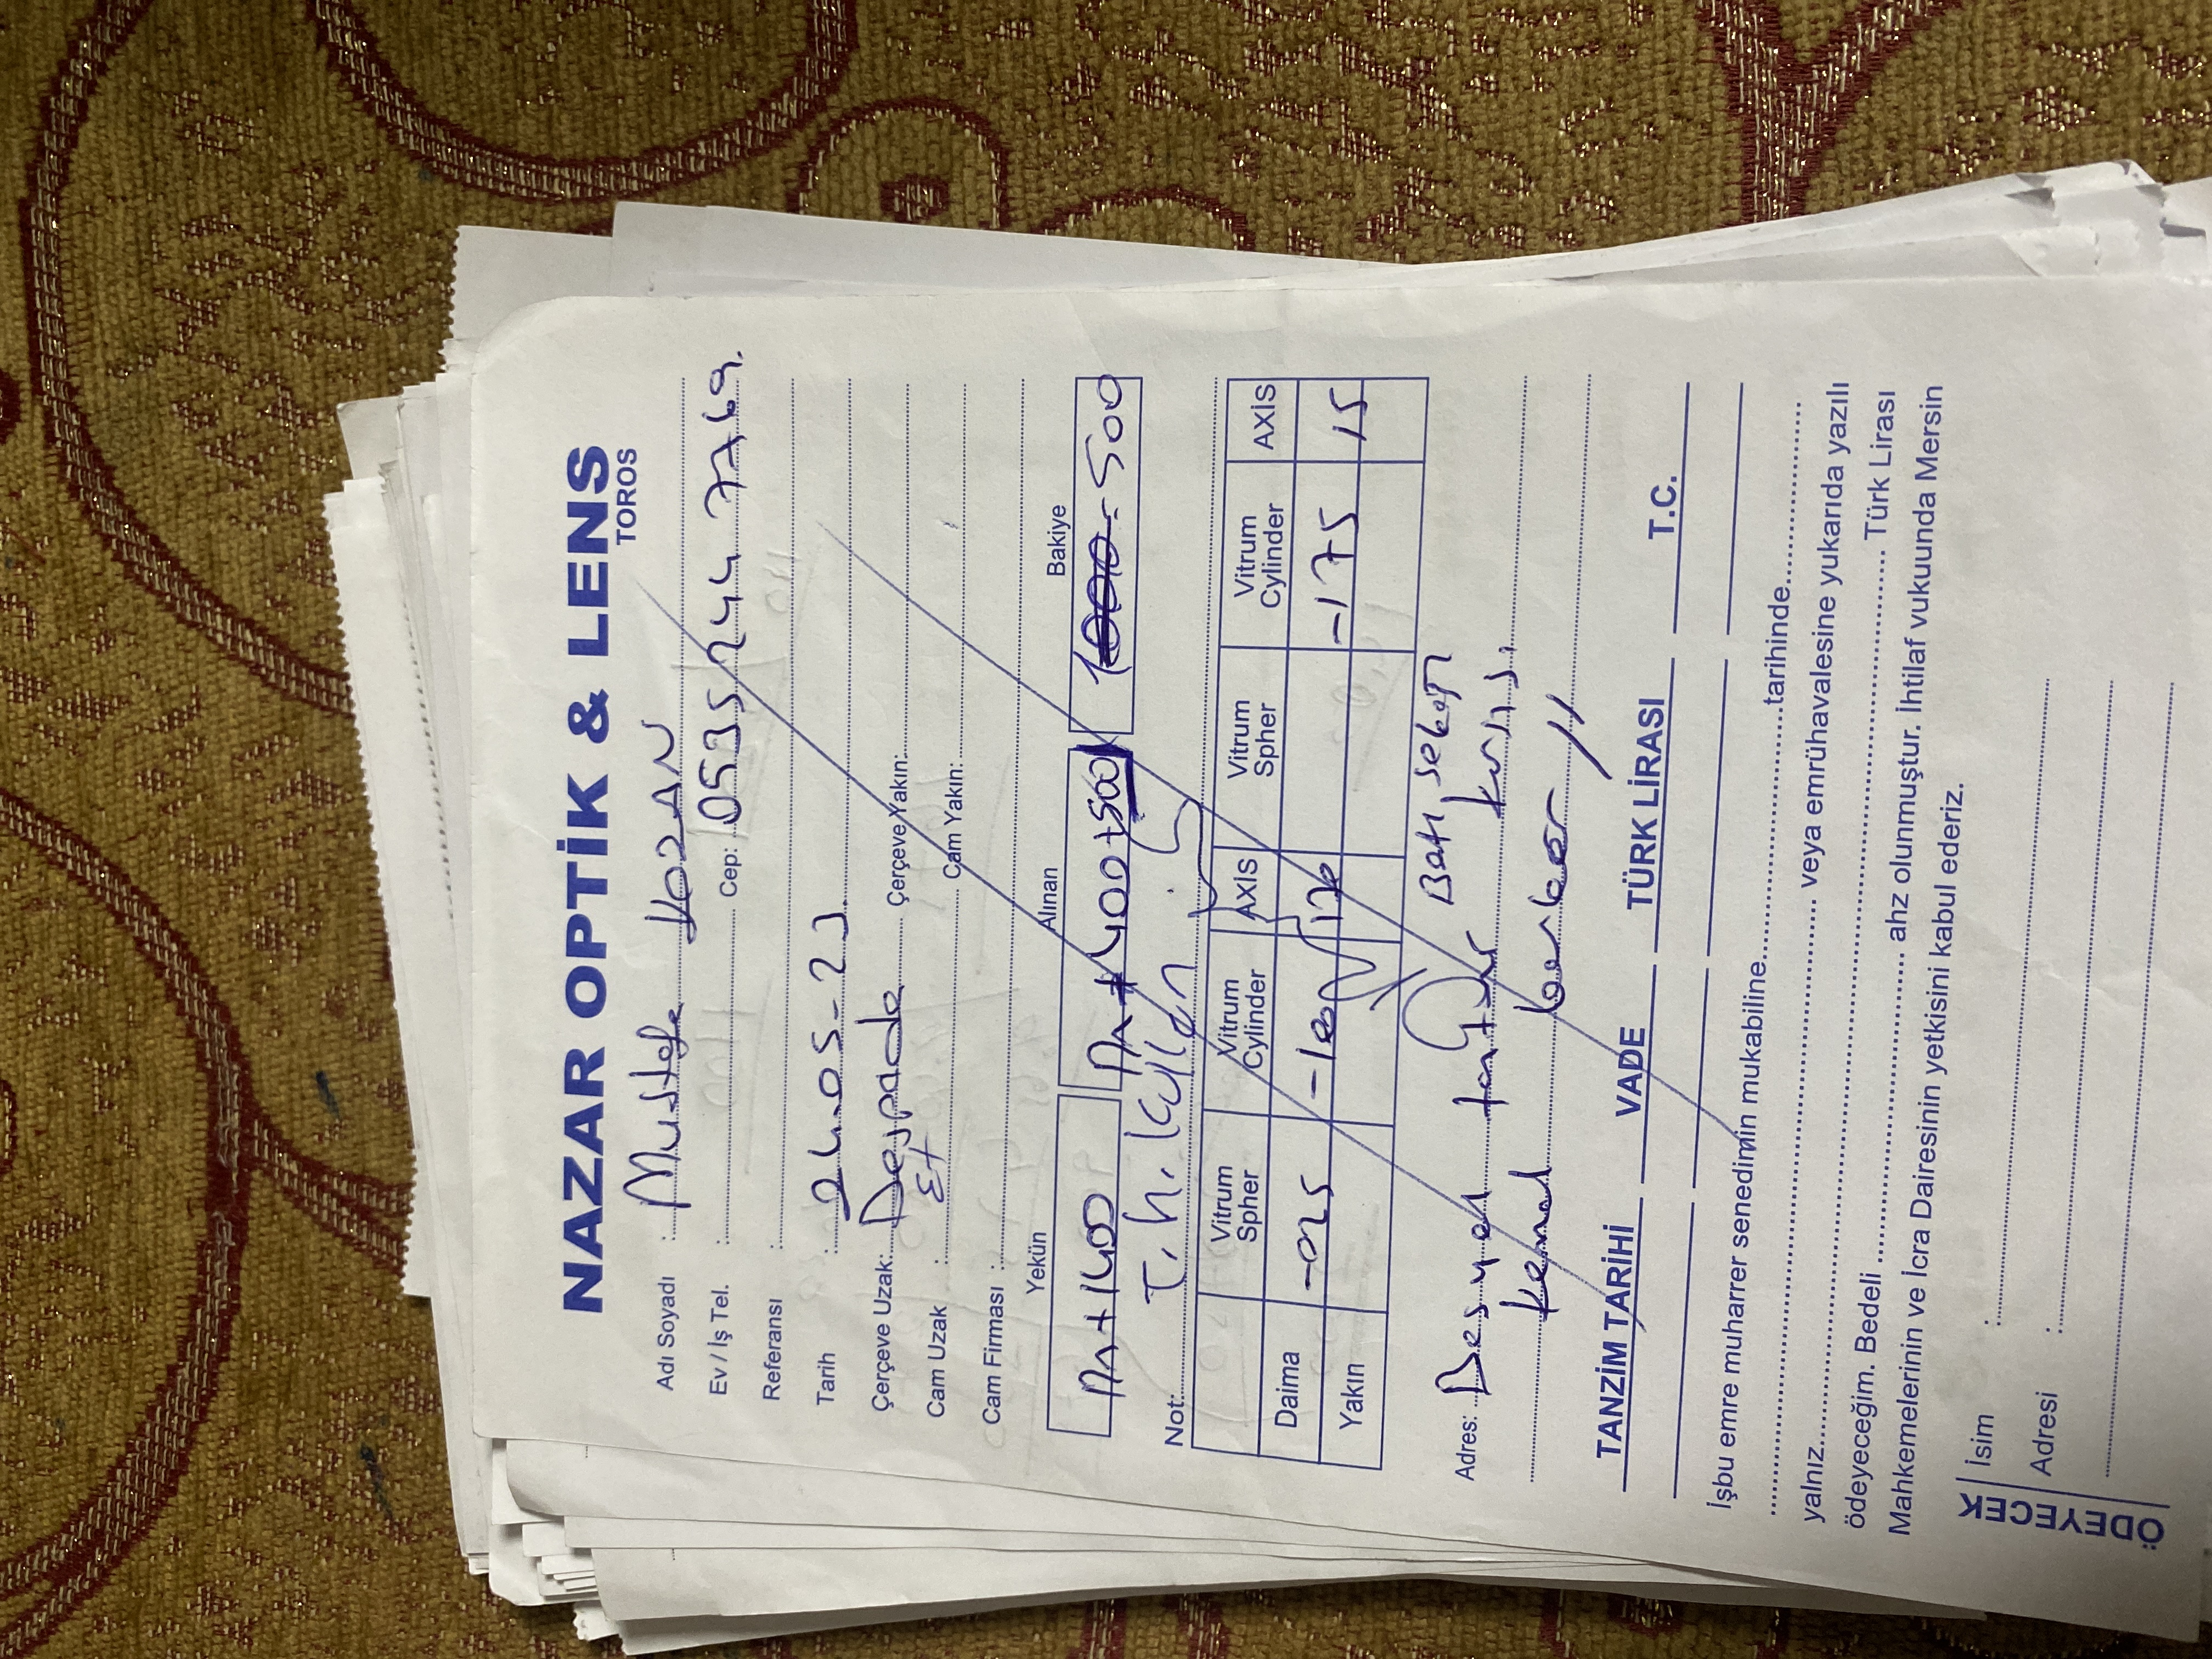 NAZAR OPTİK & LENS
TOROS
Adı Soyadı : Mustafa KOZAN
Ev / İş Tel. : Cep: 0535 244 7769.
Referansı :
Tarih : 24.05-23.
Çerçeve Uzak: Çerçeve Yakın:
Cam Uzak : Cam Yakın:
Cam Firması :
Yekün Alınan Bakiye
+1400 +400+500 1000 = 500
Not: T.h. Kullan
Vitrum Spher Vitrum Cylinder AXİS Vitrum Spher Vitrum Cylinder AXİS
Daima -025 -100 170 -175 15
Yakın
Adres:
Kemal
TANZİM TARİHİ VADE TÜRK LİRASI T.C.
İşbu emre muharrer senedimin mukabiline.............................tarihinde.....................
............................................................... veya emrühavalesine yukarıda yazılı
yalnız.................................................................................... Türk Lirası
ödeyeceğim. Bedeli ................................... ahz olunmuştur. İhtilaf vukuunda Mersin
Mahkemelerinin ve İcra Dairesinin yetkisini kabul ederiz.
ÖDEYECEK
İsim :
Adresi :